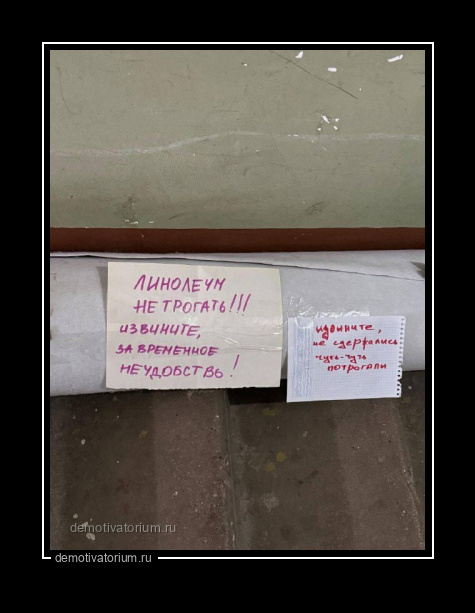 ЛИНОЛЕУМ
НЕ ТРОГАТЬ!!!
ИЗВИНИТЕ,
ЗА ВРЕМЕННОЕ
НЕУДОБСТВЬ!
извините,
не сдержались
чуть-чуть
потрогали
demotivatorium.ru
demotivatorium.ru